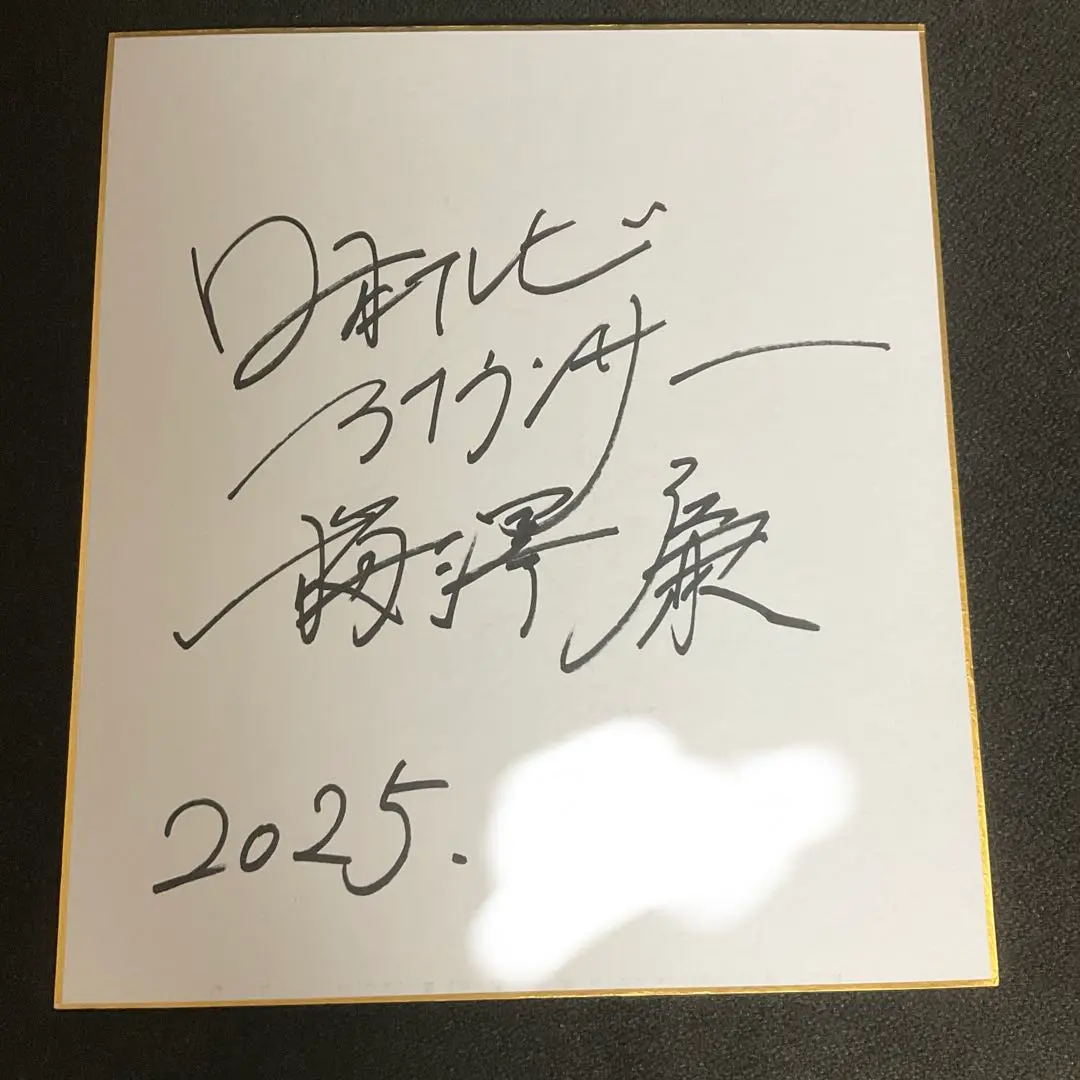 日本テレビ
アナウンサー
梅澤廉
2025.